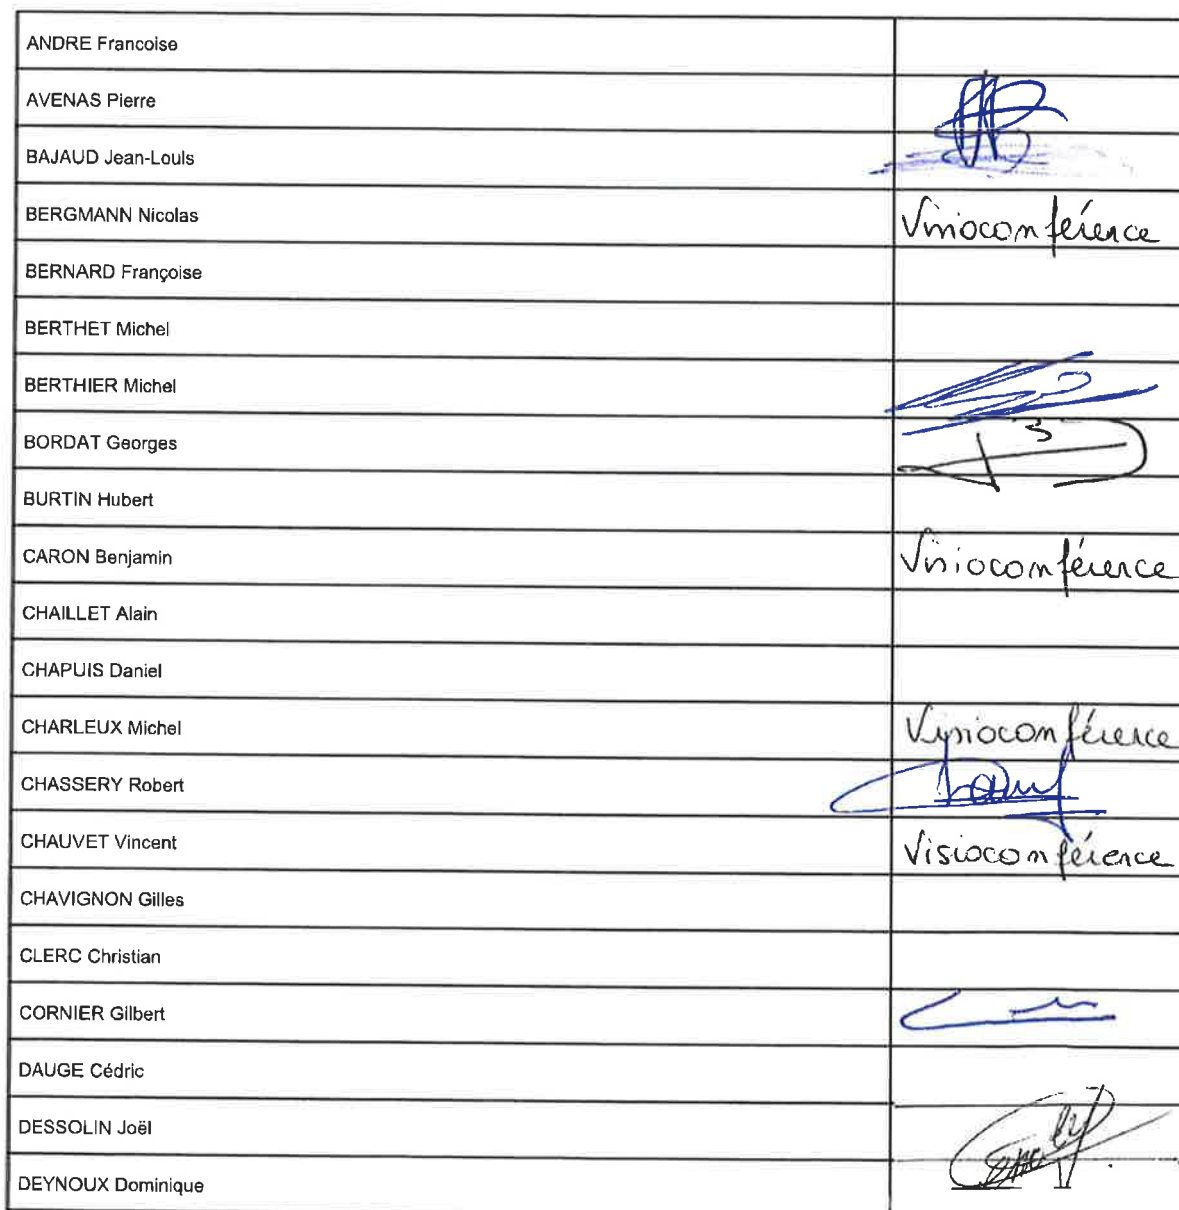 ANDRE Francoise
AVENAS Pierre
BAJAUD Jean-Louis
BERGMANN Nicolas Visioconférence
BERNARD Françoise
BERTHET Michel
BERTHIER Michel
BORDAT Georges
BURTIN Hubert
CARON Benjamin Visioconférence
CHAILLET Alain
CHAPUIS Daniel
CHARLEUX Michel Visioconférence
CHASSERY Robert
CHAUVET Vincent Visioconférence
CHAVIGNON Gilles
CLERC Christian
CORNIER Gilbert
DAUGE Cédric
DESSOLIN Joël
DEYNOUX Dominique